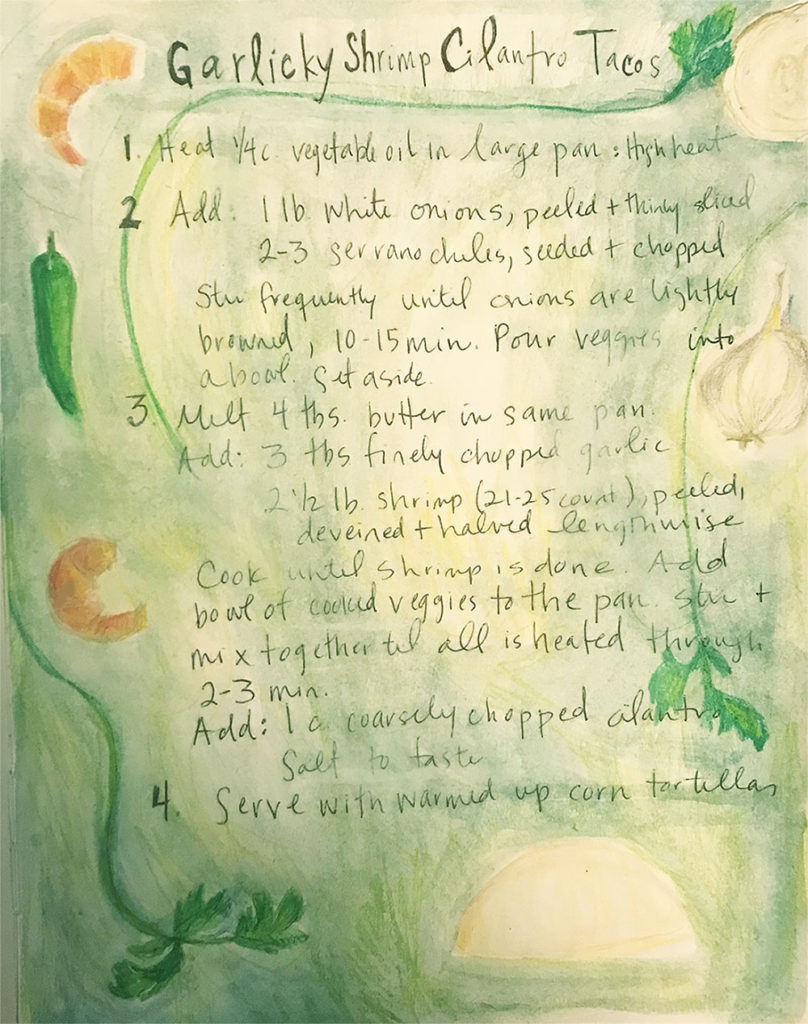 Garlicky Shrimp Cilantro Tacos
1. Heat 1/4 c. vegetable oil in large pan : High heat
2 Add: 1 lb. white onions, peeled + thinly sliced
2-3 serrano chiles, seeded + chopped
Stir frequently until onions are lightly
browned, 10-15 min. Pour veggies into
a bowl. Set aside.
3. Melt 4 tbs. butter in same pan.
Add: 3 tbs finely chopped garlic
2 1/2 lb. shrimp (21-25 count), peeled,
deveined + halved lengthwise
Cook until shrimp is done. Add
bowl of cooked veggies to the pan. Stir +
mix together til all is heated through,
2-3 min.
Add: 1 c. coarsely chopped cilantro.
Salt to taste
4. Serve with warmed up corn tortillas